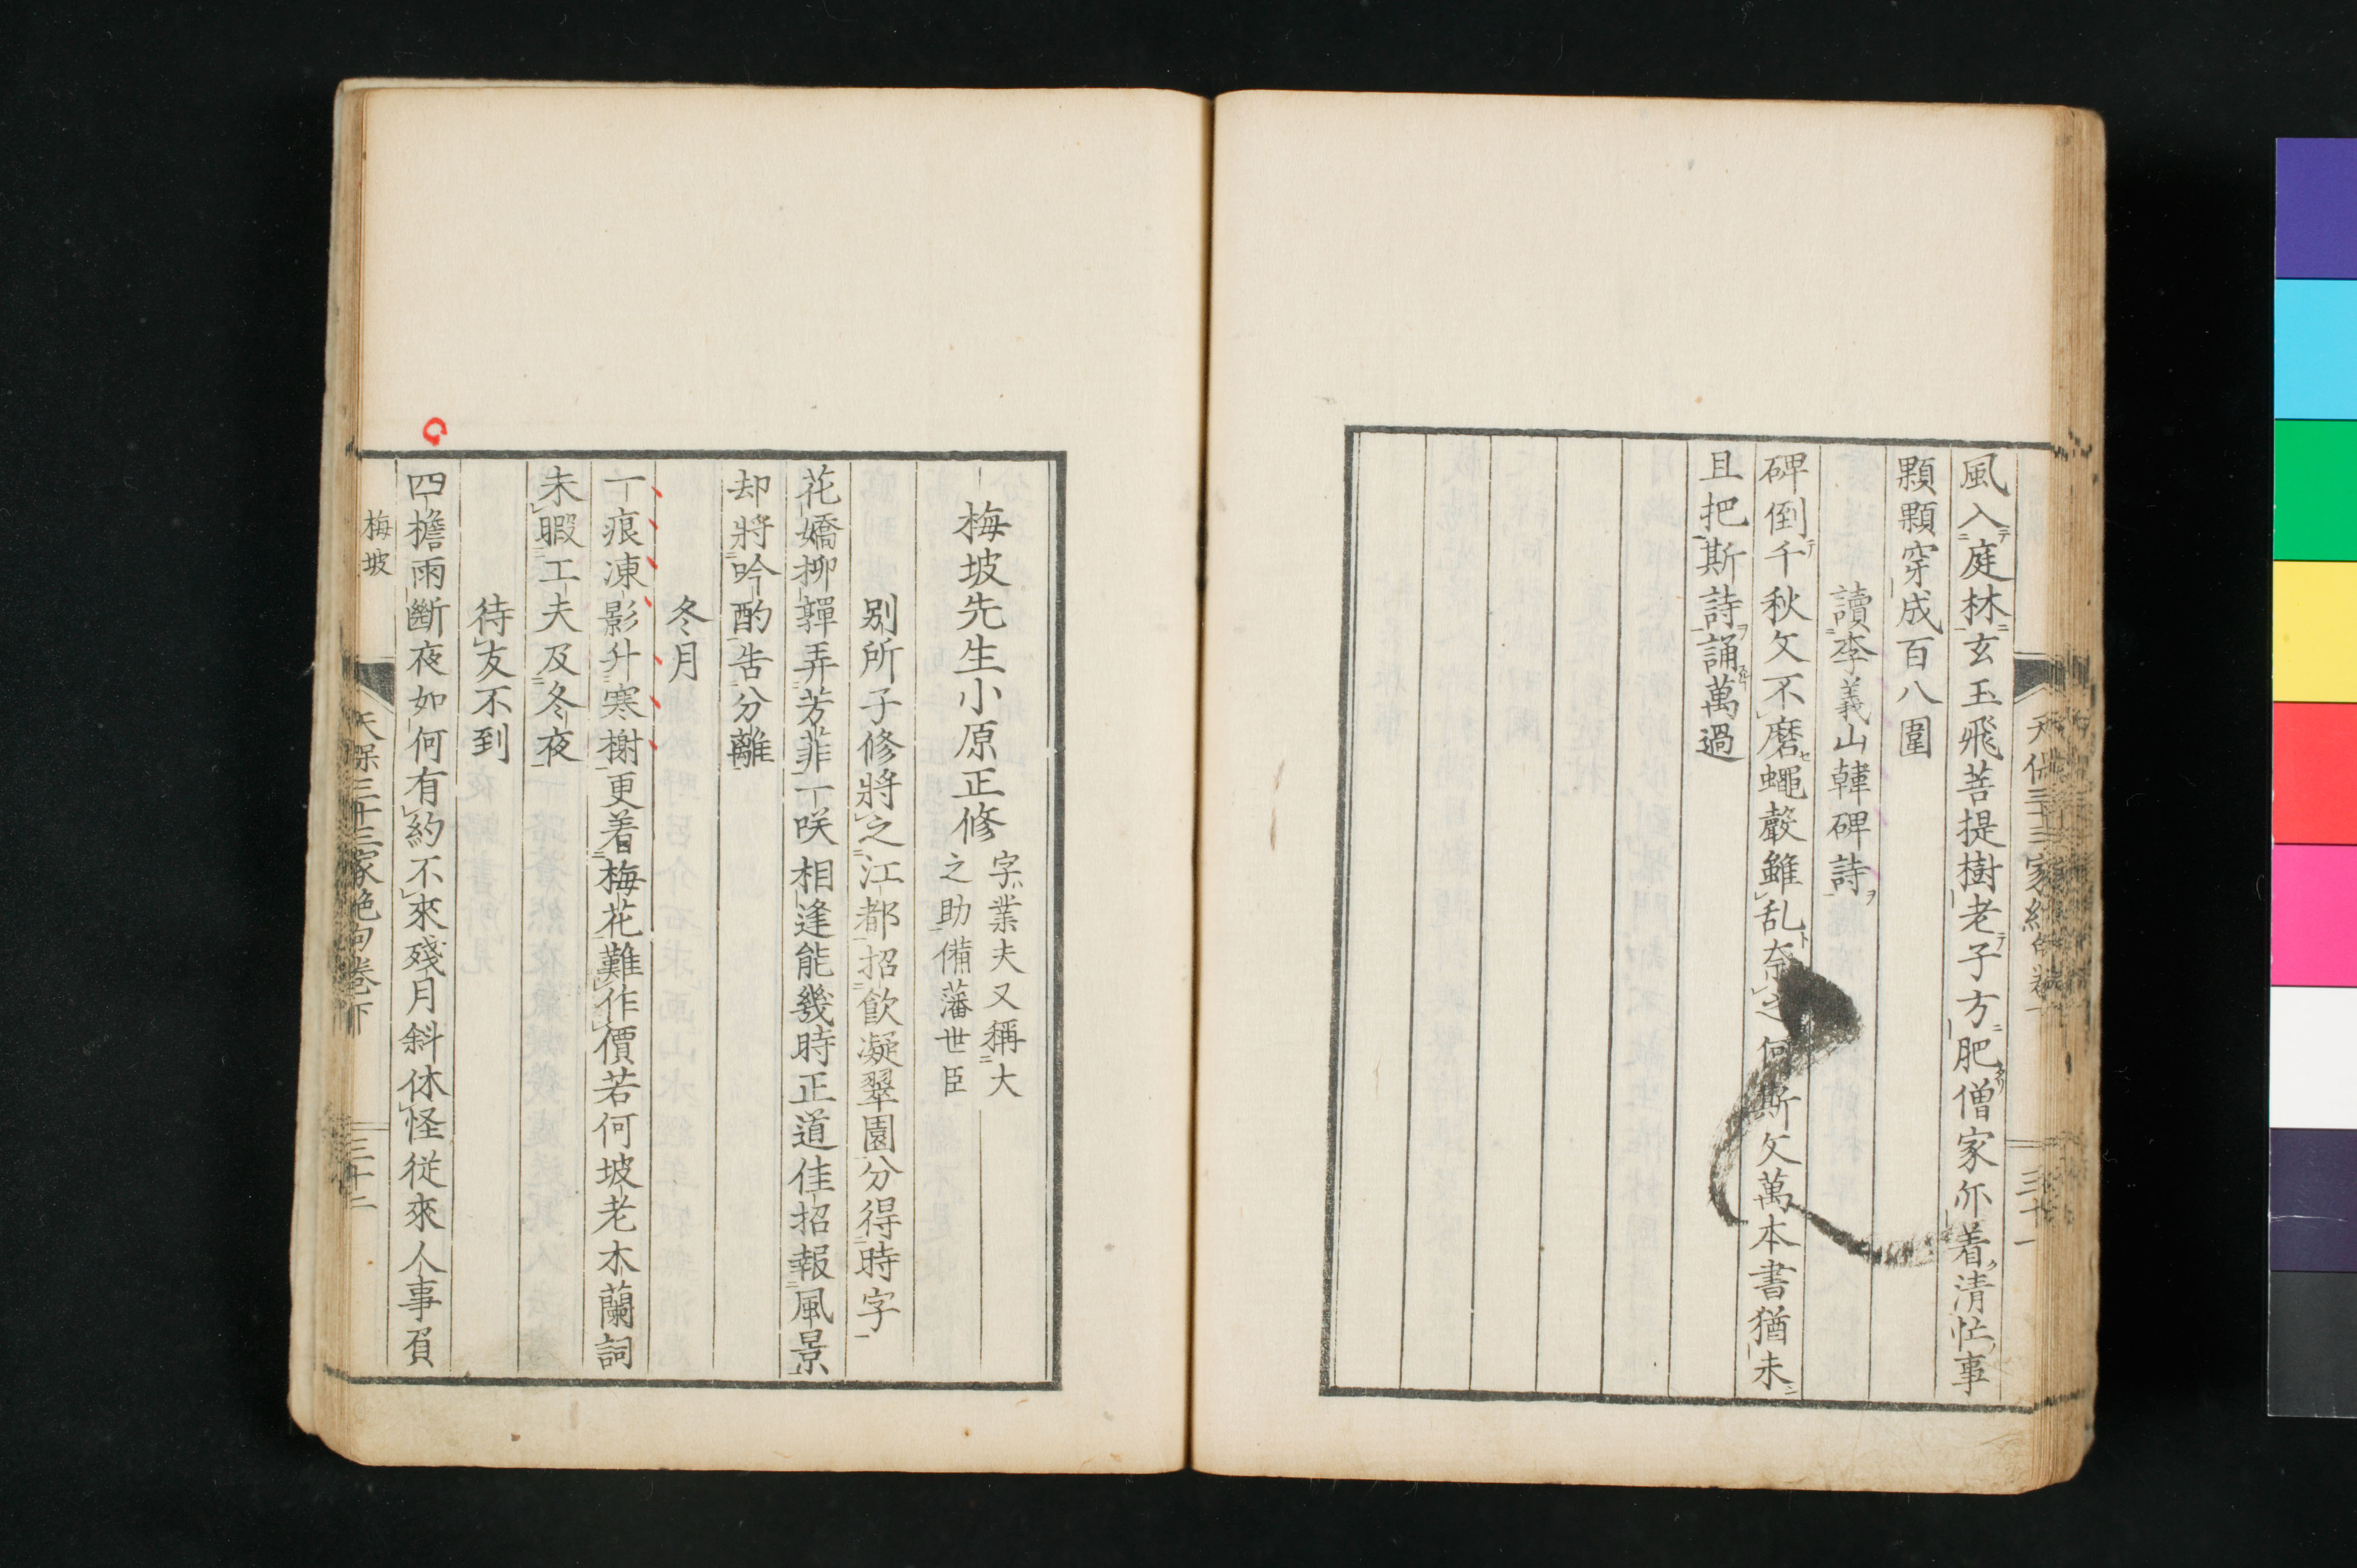 風入庭林玄玉飛菩提樹老子方肥僧家亦着清忙事
顆顆穿成百八圍
讀李義山韓碑詩
碑倒千秋文不磨蠅聲雖乱奈之何斯文萬本書猶未
且把斯詩誦萬過
梅坡先生小原正修
字業夫又稱大
之助備藩世臣
別所子修將之江都招飲凝翠園分得時字
花嬌柳嚲弄芳菲一咲相逢能幾時正道佳招報風景
却將吟酌告分離
冬月
一痕凍影升寒榭更着梅花難作價若何坡老木蘭詞
未暇工夫及冬夜
待友不到
四檐雨斷夜如何有約不來殘月斜休怪從來人事負
梅坡
天保三十三家絶句卷下
三十二